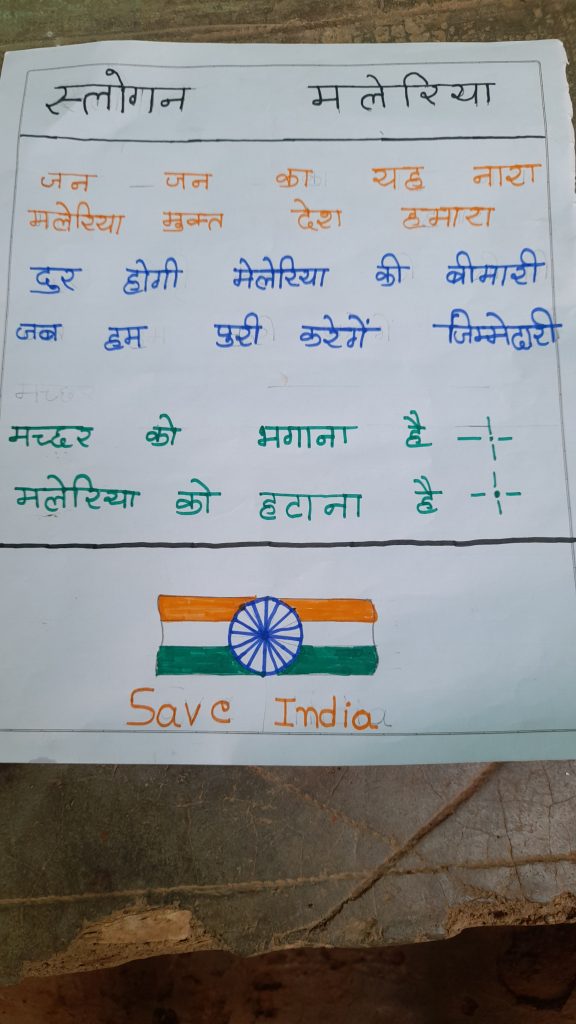 स्लोगन मलेरिया
जन जन का यह नारा
मलेरिया मुक्त देश हमारा
दुर होगी मेलेरिया की बीमारी
जब हम पुरी करेगें जिम्मेदारी
मच्छर
मच्छर को भगाना है
मलेरिया को हटाना है
Save India